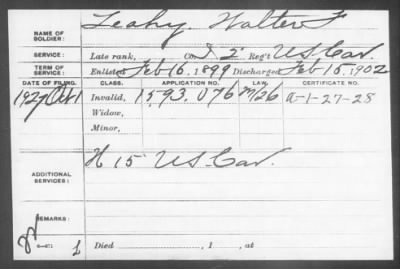 NAME OF SOLDIER: Leahy, Walter F
SERVICE: Late rank, Co. I 2" Reg't U.S. Cav.
TERM OF SERVICE: Enlisted Feb 16, 1899 Discharged Feb 15, 1902
DATE OF FILING. CLASS. APPLICATION NO. LAW. CERTIFICATE NO.
1927 Oct 1 Invalid, 1,593,076 M/26 A-1-27-28
Widow,
Minor,
ADDITIONAL SERVICES: H 15" U.S. Cav.
REMARKS:
Died , 1 , at